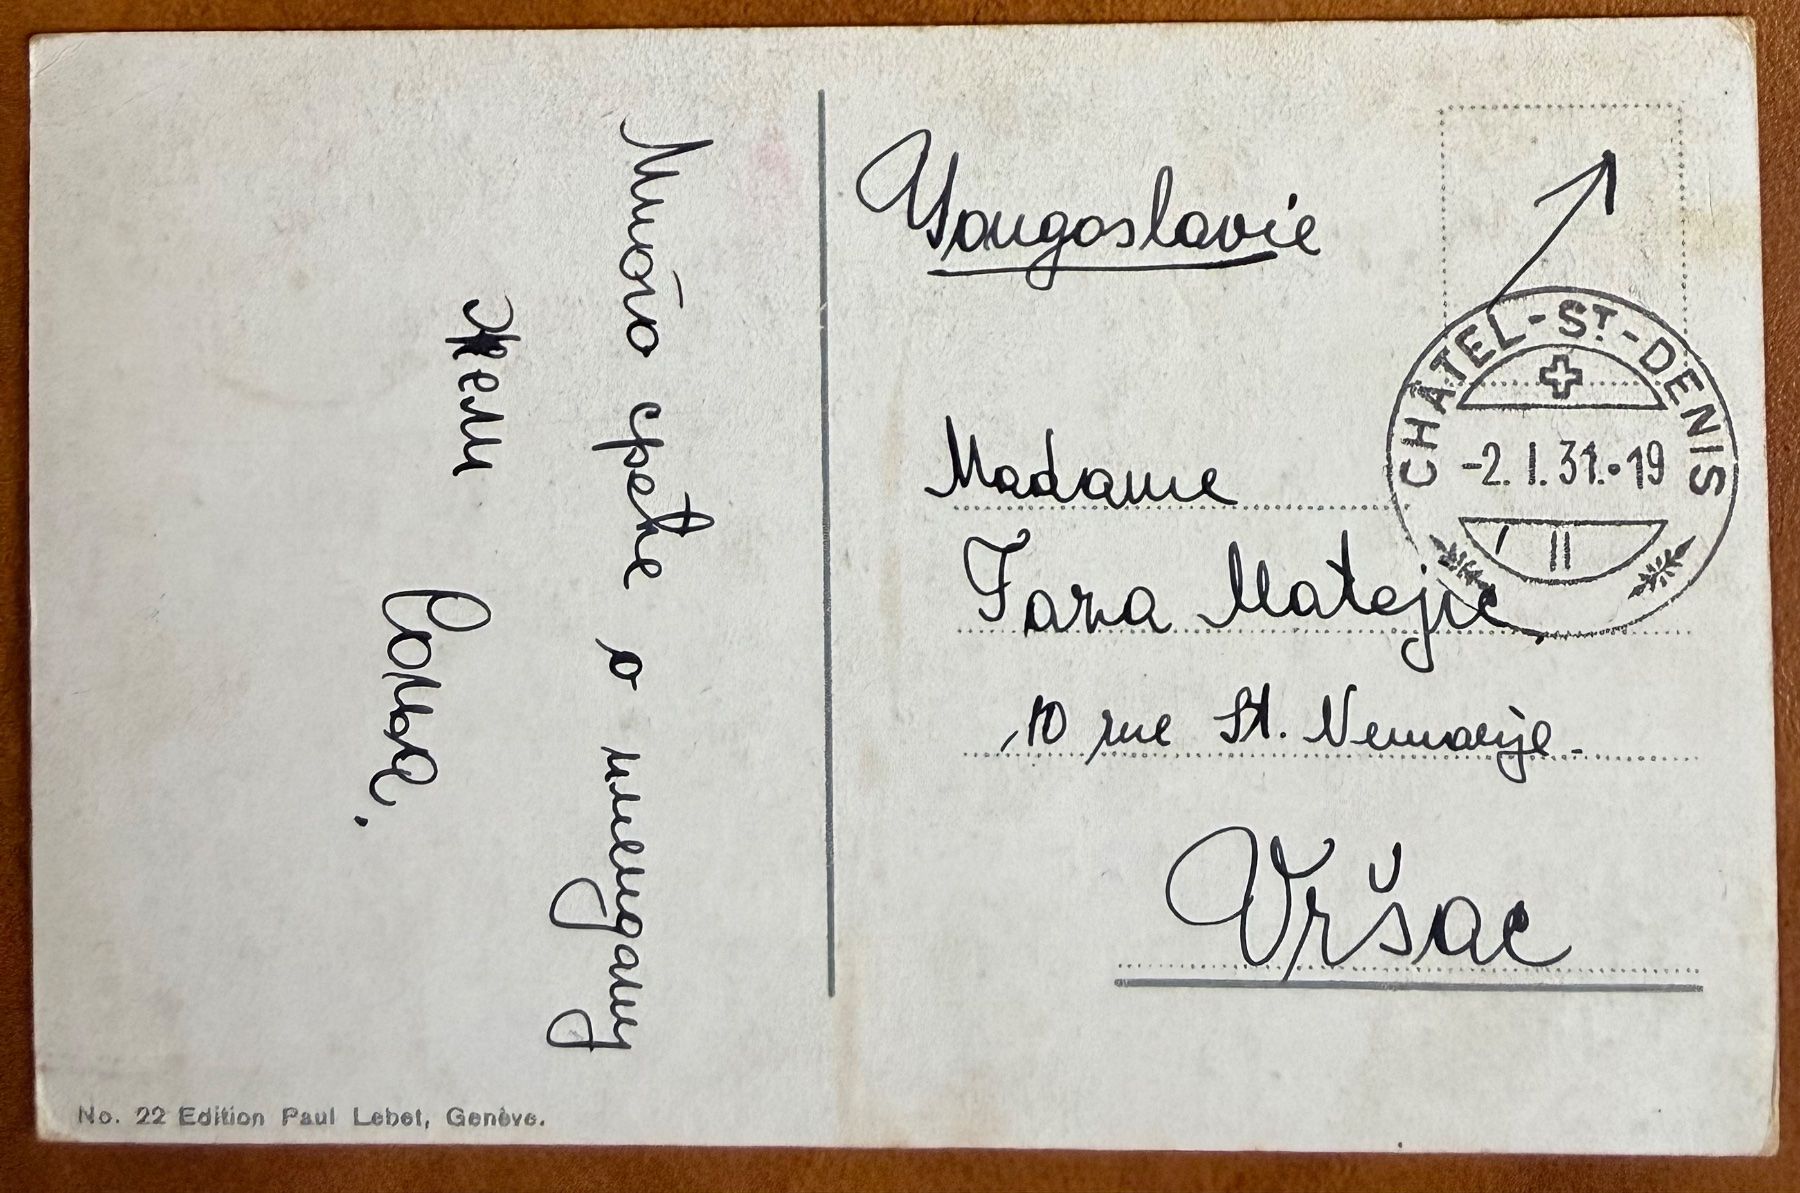 Много среће о имендану
жели
Соња.
Yougoslavie
CHÂTEL-ST-DENIS
-2.I.31.-19
Madame
Matejić
10 rue St. Nemanje.
Vršac
No. 22 Edition Paul Lebet, Genève.